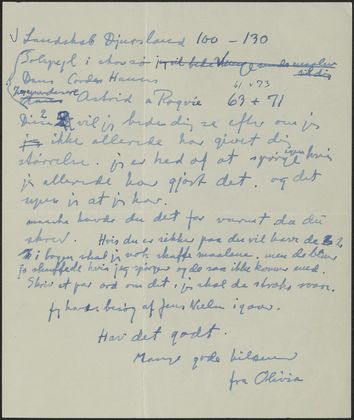 Landskab Djursland 100 - 130
i
Dans Corder Hauns 61 + 73
Astrid a Rogvie 63 + 71
Disse 2 vil jeg bede dig se efter om jeg
ikke allerede har givet dig
størrelse. jeg er ked af at spørge igen hvis
jeg allerede har gjort det. og det
synes jeg at jeg har.
maaske havde du det for varmt da du
skrev. Hvis du er sikker paa du vil have de 2
i bogen skal jeg nok skaffe maalene. men de bliver
jo skuffede hvis jeg spørger og de saa ikke kommer med.
Skriv et par ord om det, jeg skal da straks svare.
jeg havde besøg af Jens Nielsen igaar.
Hav det godt.
Mange gode hilsener
fra Olivia